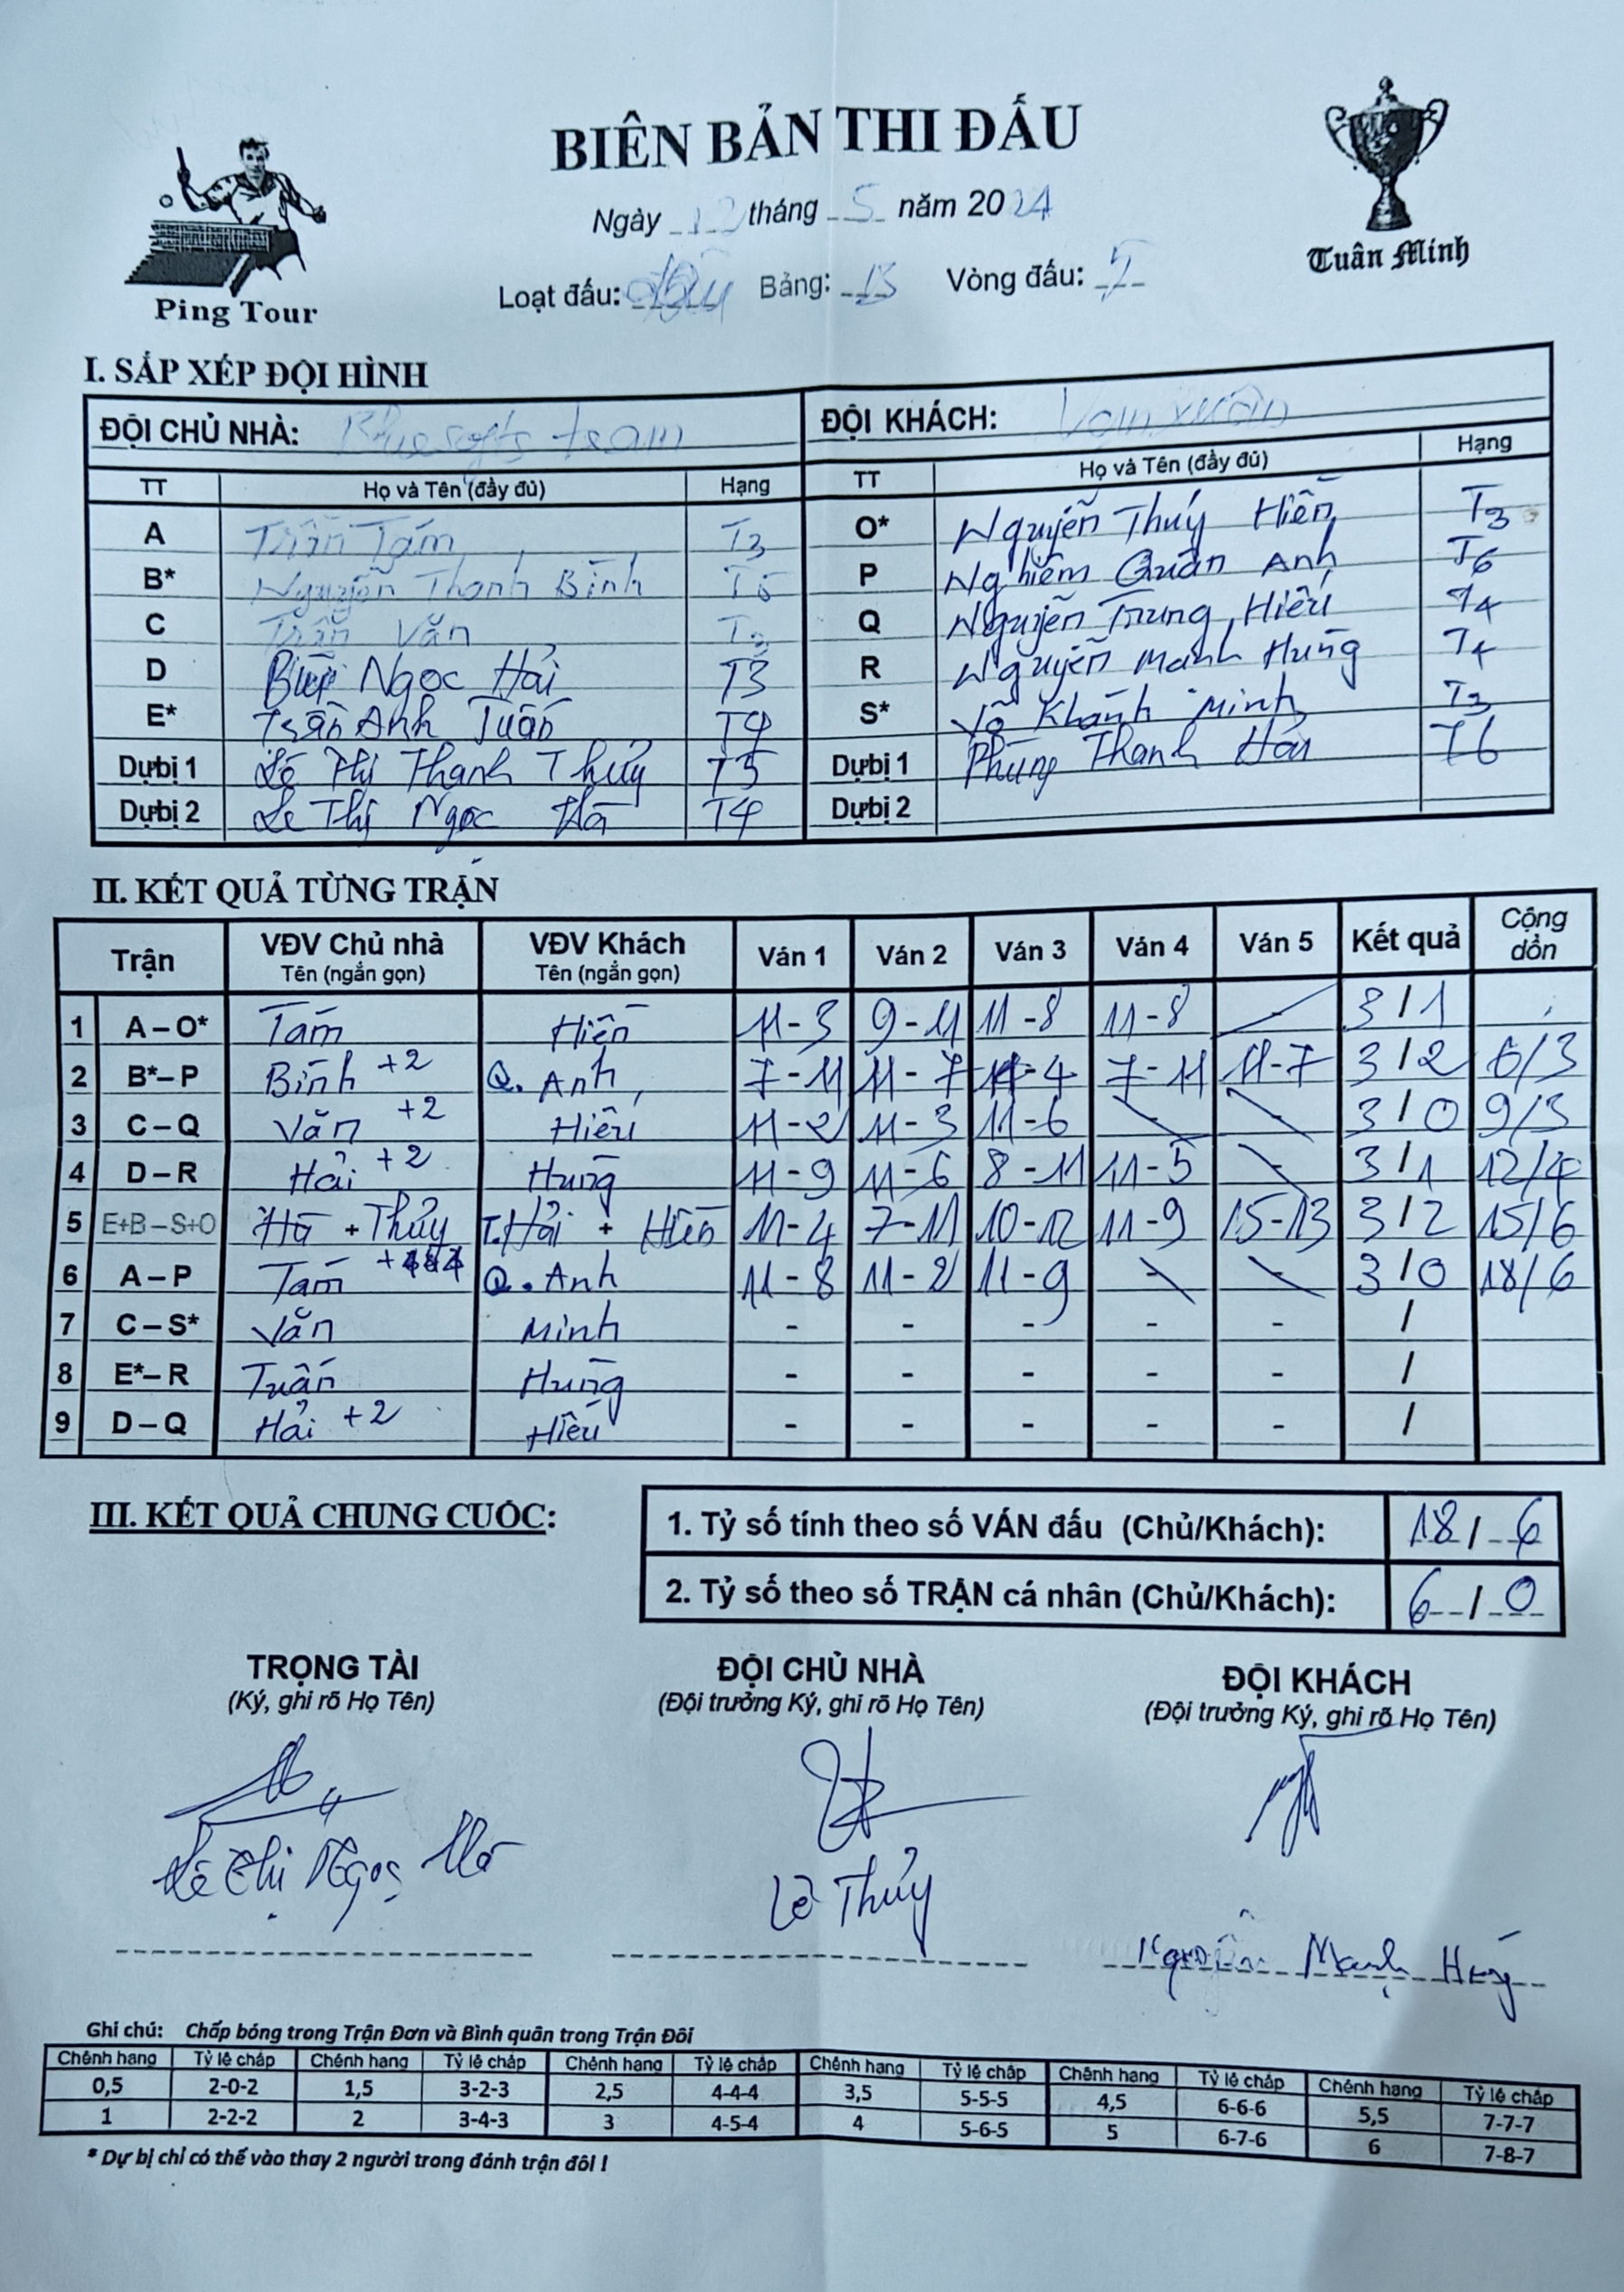 BIÊN BẢN THI ĐẤU
Ping Tour
Tuân Minh
Ngày 12 tháng 5 năm 2024
Loạt đấu: Bảng: B Vòng đấu:
I. SẮP XẾP ĐỘI HÌNH
ĐỘI CHỦ NHÀ: Bluesofts team ĐỘI KHÁCH: Vạn Xuân
TT Họ và Tên (đầy đủ) Hạng TT Họ và Tên (đầy đủ) Hạng
A Trần Tám T3 O* Nguyễn Thúy Hiền T3
B* Nguyễn Thanh Bình T5 P Nghiêm Quân Anh T6
C Trần Văn O Nguyễn Trung Hiếu T4
D Ngọc Hải T3 R Nguyễn Mạnh Hùng T4
E* Trần Anh Tuấn T4 S* Võ Khánh Minh T3
Dự bị 1 Lê Thị Thanh Thủy T5 Dự bị 1 Phùng Thanh Hải T6
Dự bị 2 Lê Thị Ngọc Hà T4 Dự bị 2
II. KẾT QUẢ TỪNG TRẬN
Trận VĐV Chủ nhà Tên (ngắn gọn) VĐV Khách Tên (ngắn gọn) Ván 1 Ván 2 Ván 3 Ván 4 Ván 5 Kết quả Cộng dồn
1 A – O* Tám Hiền 11-3 9-11 11-8 11-8 - 3/1
2 B* – P Bình +2 Q. Anh 7-11 11-7 11-4 7-11 11-7 3/2 6/3
3 C – Q Văn +2 Hiếu 11-2 11-3 11-6 - - 3/0 9/3
4 D – R Hải +2 Hùng 11-9 11-6 8-11 11-5 - 3/1 12/4
5 E+B – S+O Hà + Thủy T.Hải + Hiền 11-4 7-11 10-12 11-9 15-13 3/2 15/6
6 A – P Tám Q. Anh 11-8 11-2 11-9 - - 3/0 18/6
7 C – S* Văn Minh - - - - - /
8 E* – R Tuấn Hùng - - - - - /
9 D – Q Hải +2 Hiếu - - - - - /
III. KẾT QUẢ CHUNG CUỘC:
1. Tỷ số tính theo số VÁN đấu (Chủ/Khách): 18/6
2. Tỷ số theo số TRẬN cá nhân (Chủ/Khách): 6/0
TRỌNG TÀI ĐỘI CHỦ NHÀ ĐỘI KHÁCH
(Ký, ghi rõ Họ Tên) (Đội trưởng Ký, ghi rõ Họ Tên) (Đội trưởng Ký, ghi rõ Họ Tên)
Lê Thị Ngọc Hà Lê Thủy Nguyễn Mạnh Hùng
Ghi chú: Chấp bóng trong Trận Đơn và Bình quân trong Trận Đôi
Chênh hạng Tỷ lệ chấp Chênh hạng Tỷ lệ chấp Chênh hạng Tỷ lệ chấp Chênh hạng Tỷ lệ chấp Chênh hạng Tỷ lệ chấp Chênh hạng Tỷ lệ chấp
0,5 2-0-2 1,5 3-2-3 2,5 4-4-4 3,5 5-5-5 4,5 6-6-6 5,5 7-7-7
1 2-2-2 2 3-4-3 3 4-5-4 4 5-6-5 5 6-7-6 6 7-8-7
* Dự bị chỉ có thể vào thay 2 người trong đánh trận đôi !